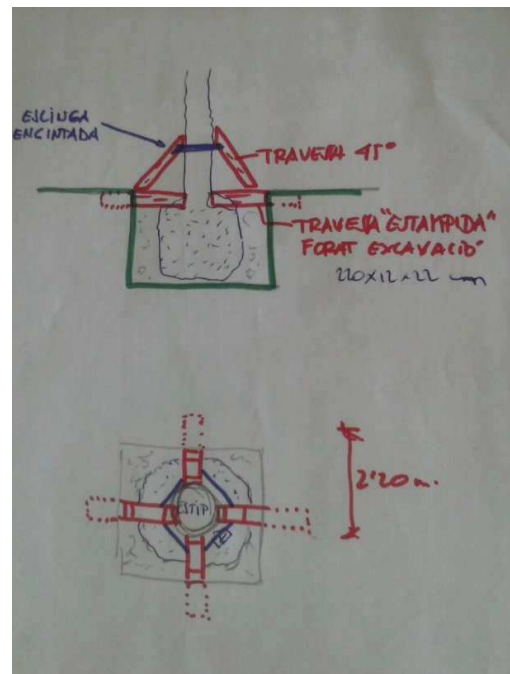 ESLINGA
ENCINTADA
TRAVESSA 45°
TRAVESSA "ESTAMPIDA"
FORAT EXCAVACIÓ
220x12x22 cm
ESTIP
2'20 m.